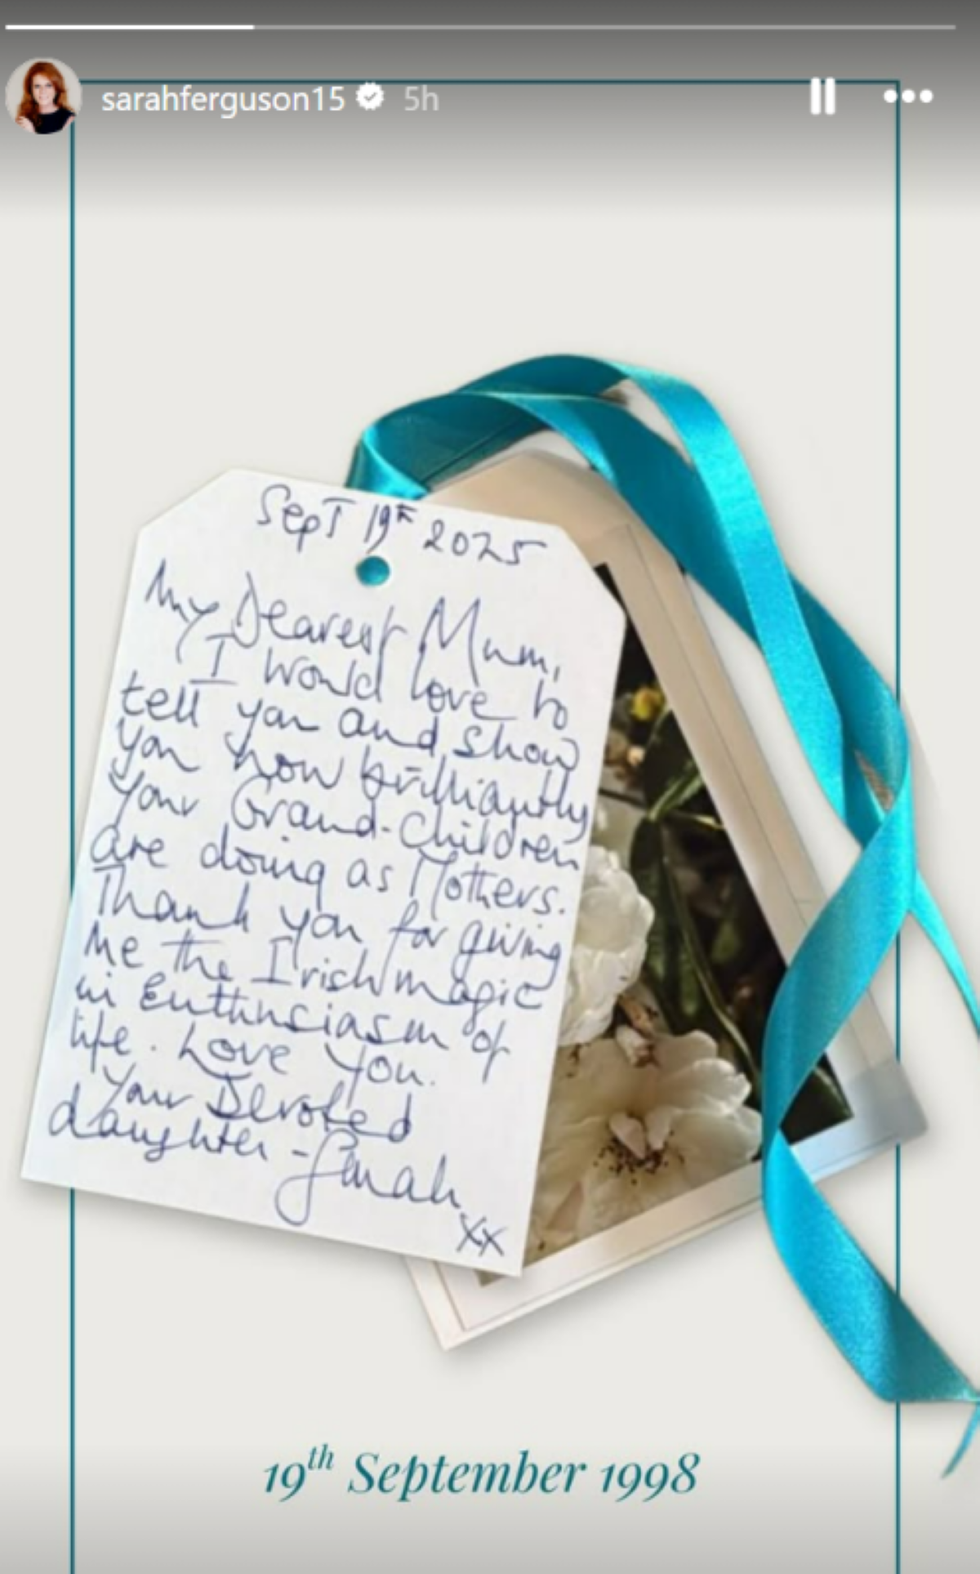 sarahferguson15 5h
SepT 19th 2025
My Dearest Mum,
I would love to
tell you and show
you how brilliantly
your Grand-Children
are doing as Mothers.
Thank you for giving
me the Irish magic
in Enthusiasm of
life. Love you.
Your Devoted
daughter - Sarah
xx
19th September 1998